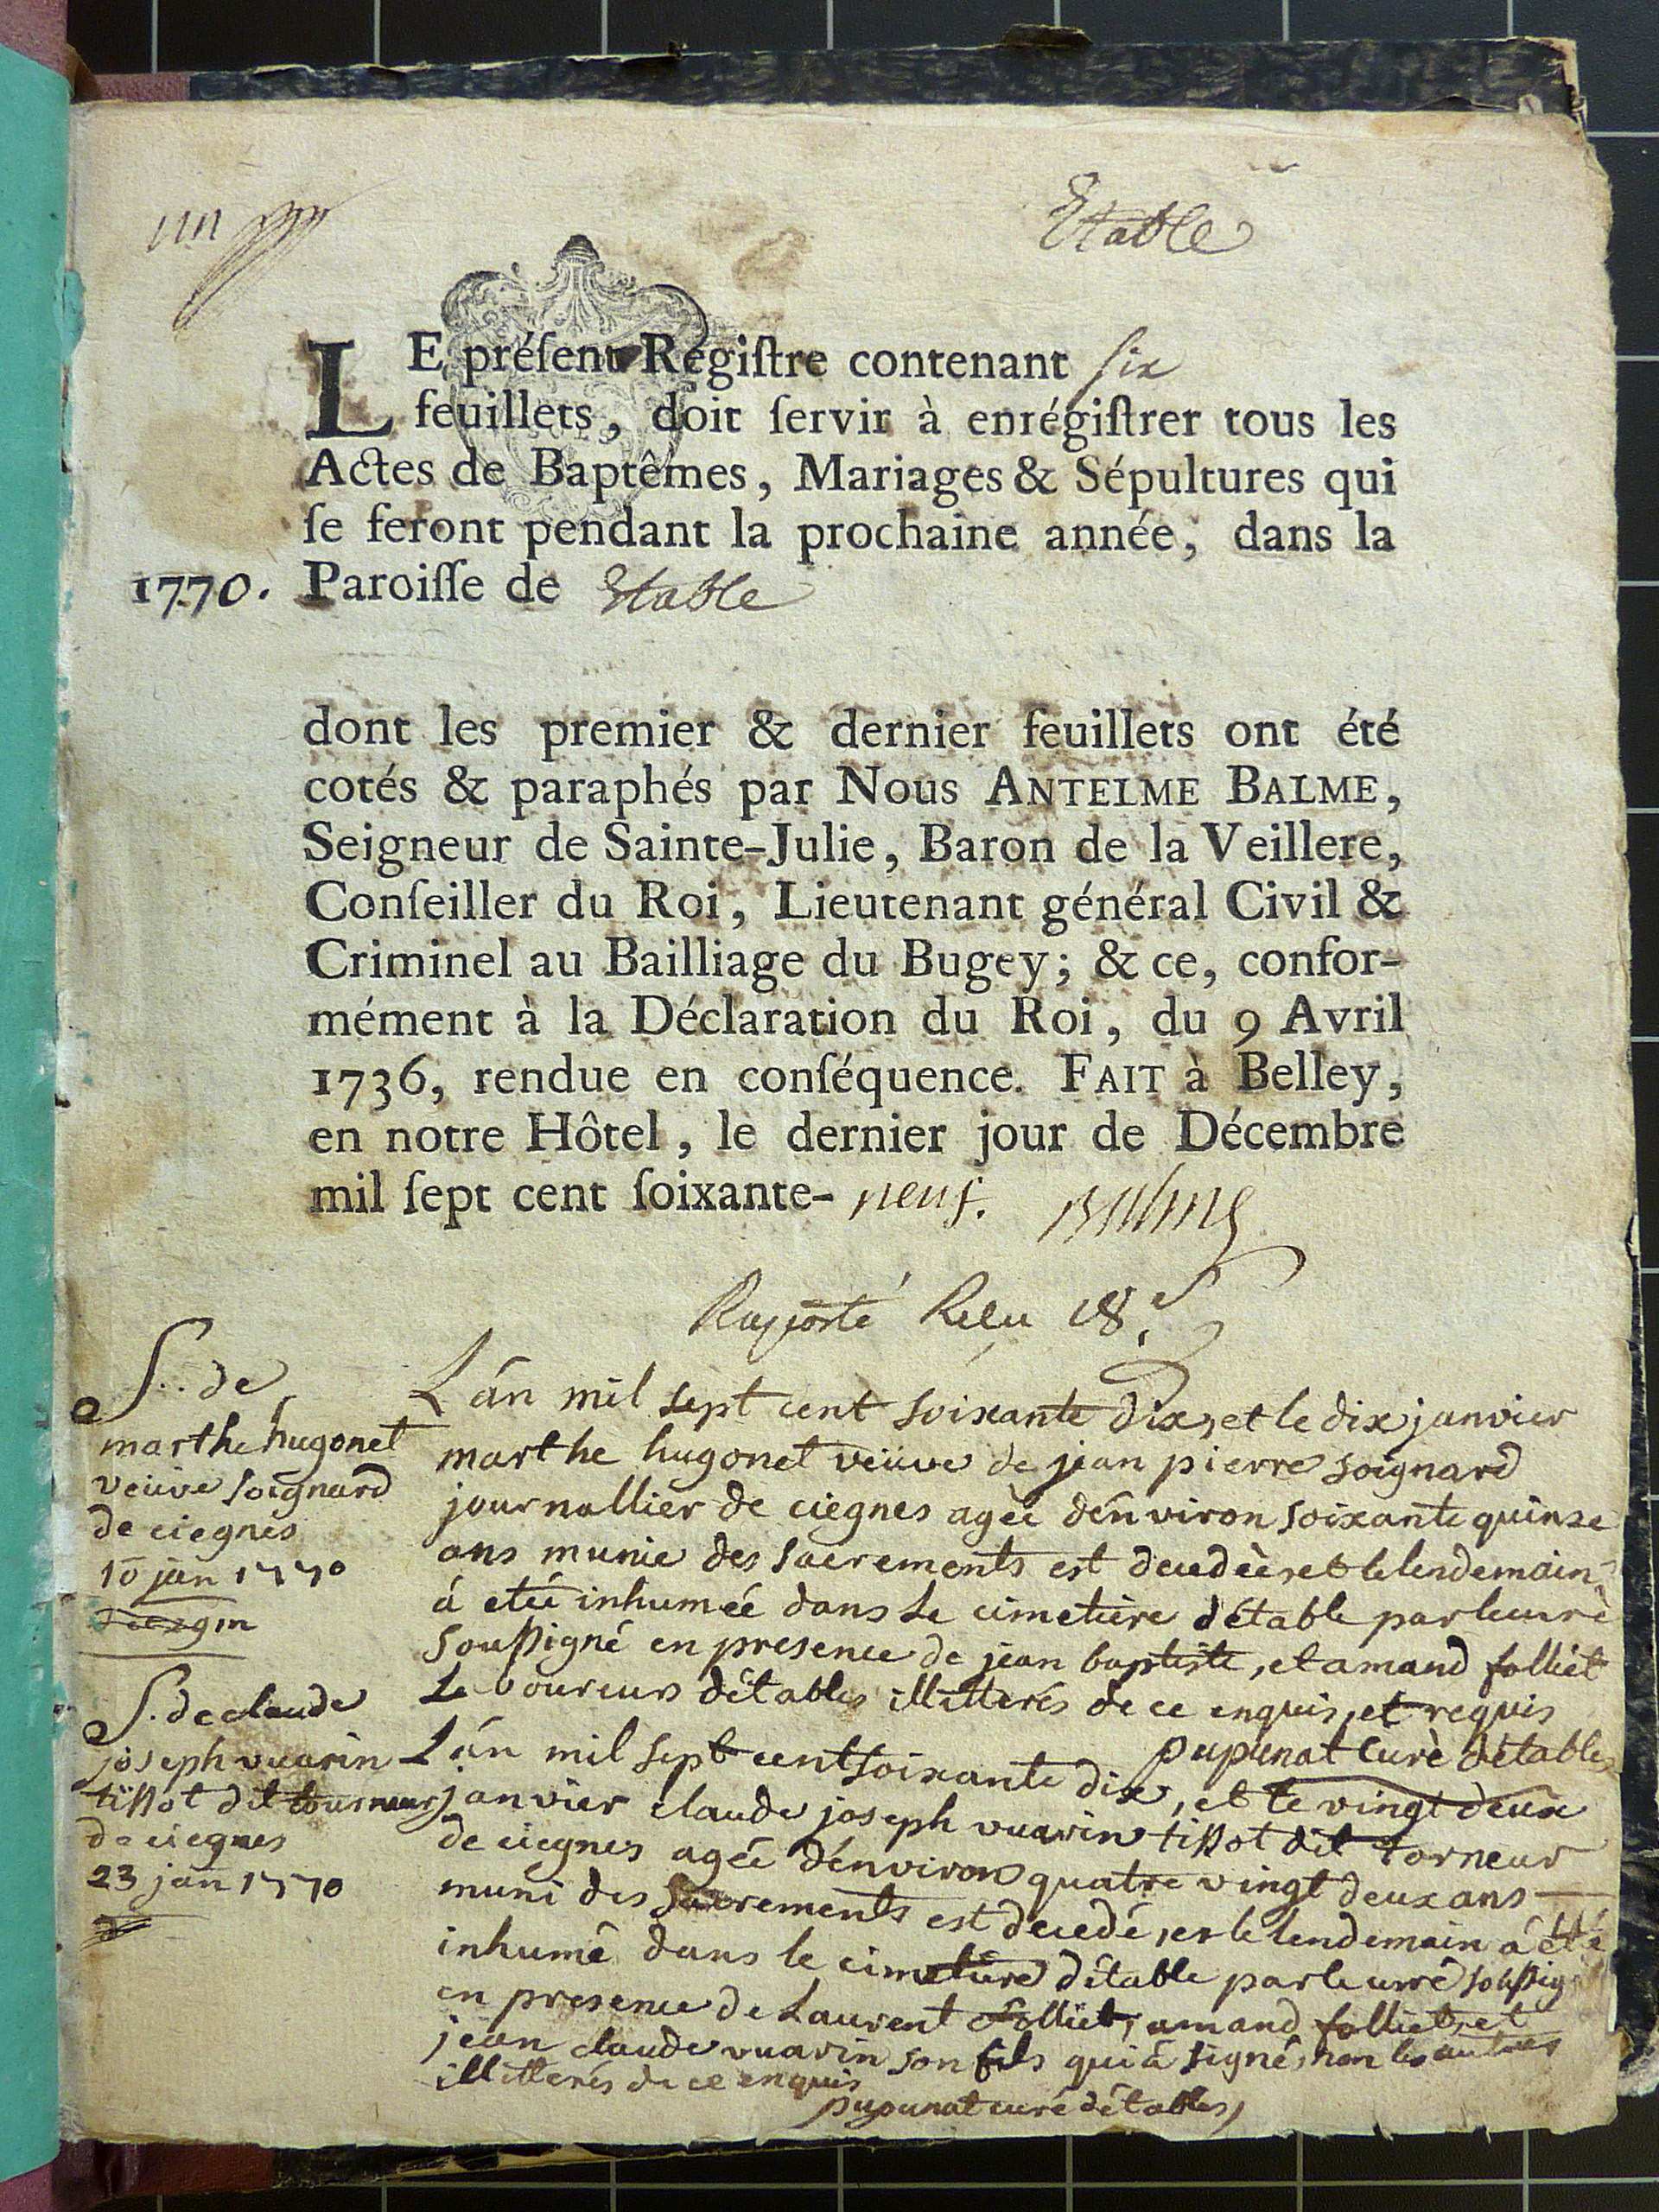 Etable
LE préſent Regiſtre contenant six
feuillets, doit ſervir à enrégiſtrer tous les
Actes de Baptêmes, Mariages & Sépultures qui
ſe feront pendant la prochaine année, dans la
1770. Paroiſſe de Etable
dont les premier & dernier feuillets ont été
cotés & paraphés par Nous ANTELME BALME,
Seigneur de Sainte-Julie, Baron de la Veillere,
Conſeiller du Roi, Lieutenant général Civil &
Criminel au Bailliage du Bugey; & ce, confor-
mément à la Déclaration du Roi, du 9 Avril
1736, rendue en conſéquence. FAIT à Belley,
en notre Hôtel, le dernier jour de Décembre
mil ſept cent ſoixante- neuf. Balme
S. de
marthe hugonet
veüve soignard
de ciegnes
10 jan 1770
L'án mil sept cent soixante dix, et le dix janvier
marthe hugonet veüve de jean pierre soignard
journallier de ciegnes agèe d'énviron soixante quinze
ans munie des sacrements est decedèe, et le lendemain
á etéé inhumeé dans le cimetiere d'étable par le curè
soussigné en presence de jean baptiste, et amand folliet
Laboureurs d'étables illitterés de ce enquis, et requis
pupunat curè d'étables
S. de claude
joseph vuarin
tissot dit tourneur
de ciegnes
23 jan 1770
L'án mil sept cent soixante dix, et le vingt deux
janvier claude joseph vuarin tissot dit torneur
de ciegnes agée d'énviron quatre vingt deux ans
muni des sacrements est decedé, et le lendemain á été
inhumé dans le cimetiere d'étable par le curé soussig
en presence de Laurent folliet, amand folliet, et
jean claude vuarin son fils qui á signé, non les autres
illitterés de ce enquis
pupunat curé d'étables